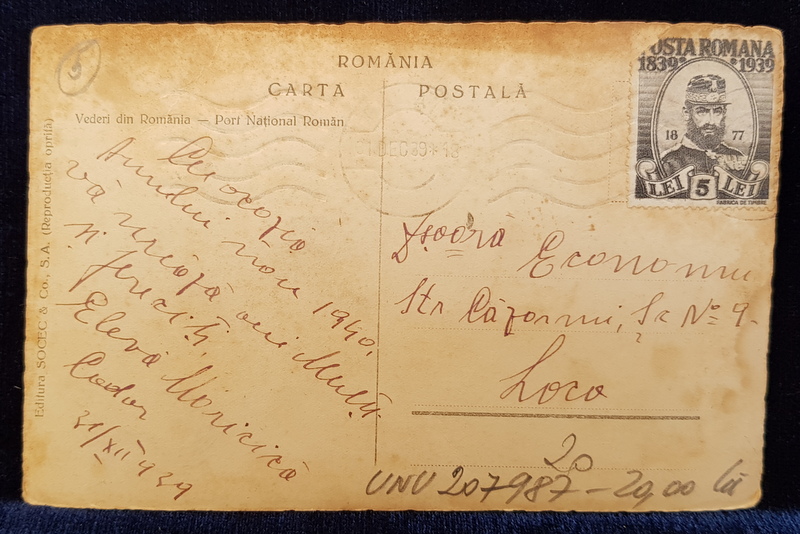 5
ROMÂNIA
CARTA POSTALĂ
Vederi din România — Port Național Român
Editura SOCEC & Co., S.A. (Reproducția oprită)
POSTA ROMANA
1839 * * 1939
18 77
LEI 5 LEI
FABRICA DE TIMBRE
DEC 39 * 18
Cu ocazia
Anului nou 1940,
vă urează ani Mulți
și fericiți,
Eleva Moricică
31/XII 939
D-șoara Economu
Str No 9.
Loco
20
UNU 207987 – 20,00 lei